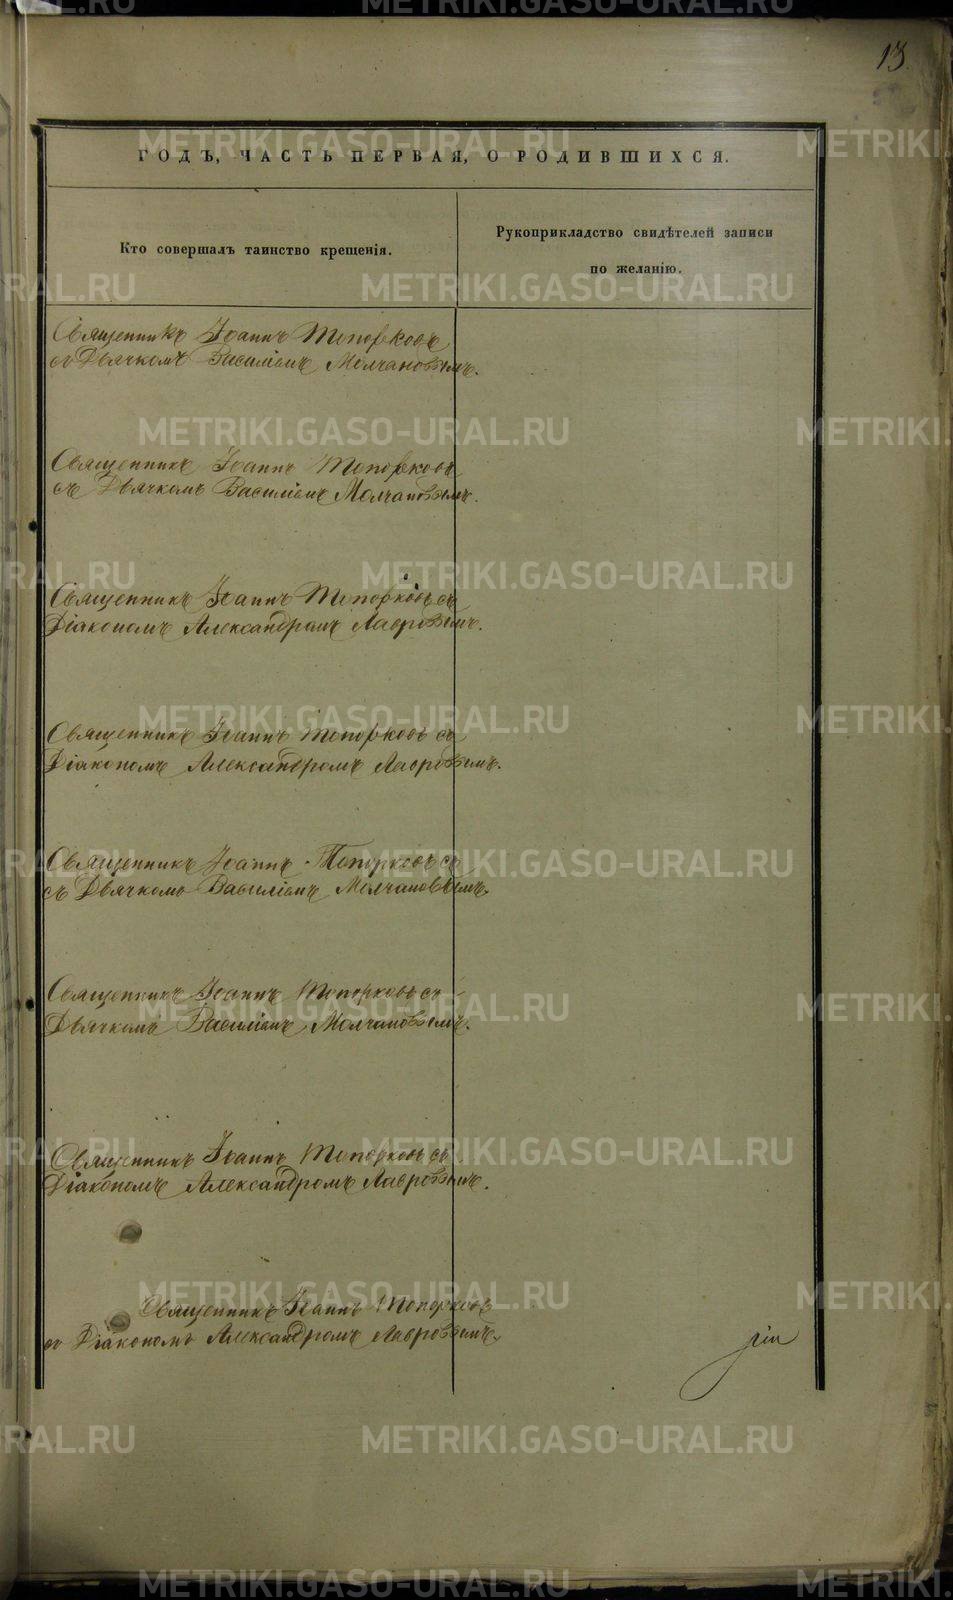 13
ГОДЪ, ЧАСТЬ ПЕРВАЯ, О РОДИВШИХСЯ.
Кто совершалъ таинство крещенія.
Рукоприкладство свидѣтелей записи
по желанію.
Священникъ Іоаннъ Топорковъ
съ Дьячкомъ Василіемъ Молчановымъ.
Священникъ Іоаннъ Топорковъ
съ Дьячкомъ Василіемъ Молчановымъ.
Священникъ Іоаннъ Топорковъ съ
Діакономъ Александромъ Лавровымъ.
Священникъ Іоаннъ Топорковъ съ
Діакономъ Александромъ Лавровымъ.
Священникъ Іоаннъ Топорковъ съ
съ Дьячкомъ Василіемъ Молчановымъ.
Священникъ Іоаннъ Топорковъ съ
Дьячкомъ Василіемъ Молчановымъ.
Священникъ Іоаннъ Топорковъ съ
Діакономъ Александромъ Лавровымъ.
Священникъ Іоаннъ Топорковъ
съ Діакономъ Александромъ Лавровымъ.
METRIKI.GASO-URAL.RU